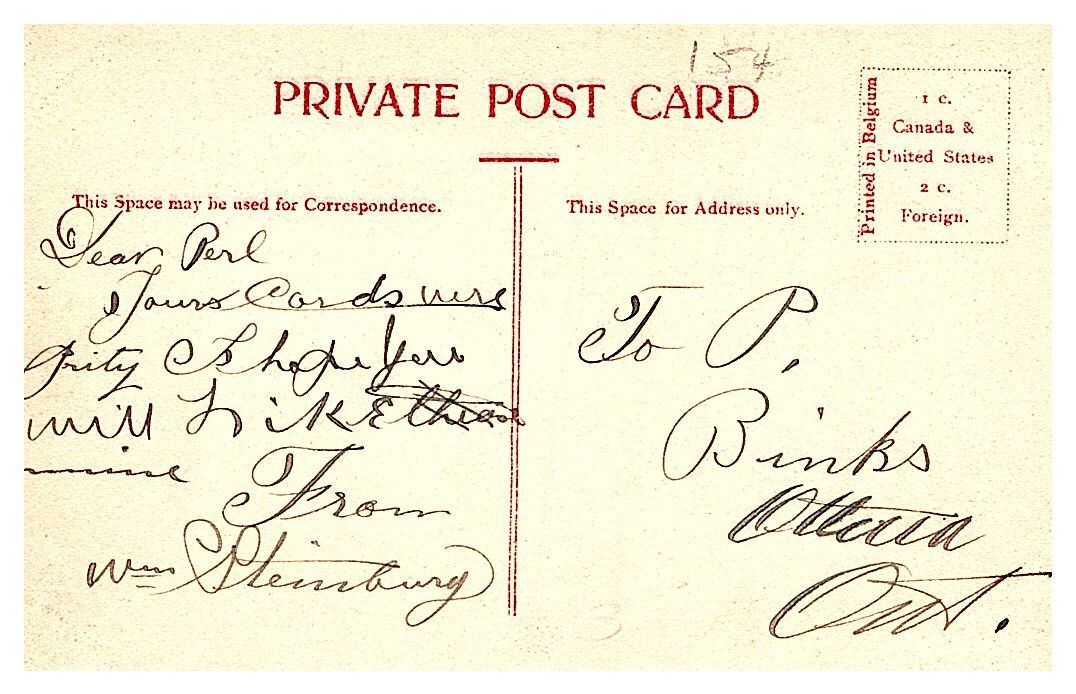 154
PRIVATE POST CARD
Printed in Belgium
1 c.
Canada &
United States
2 c.
Foreign.
This Space may be used for Correspondence.
Dear Perl
Yours Cards were
prity I hope you
will Like
mine
From
Wm Steinburg
This Space for Address only.
To P.
Binks
Ottawa
Ont.